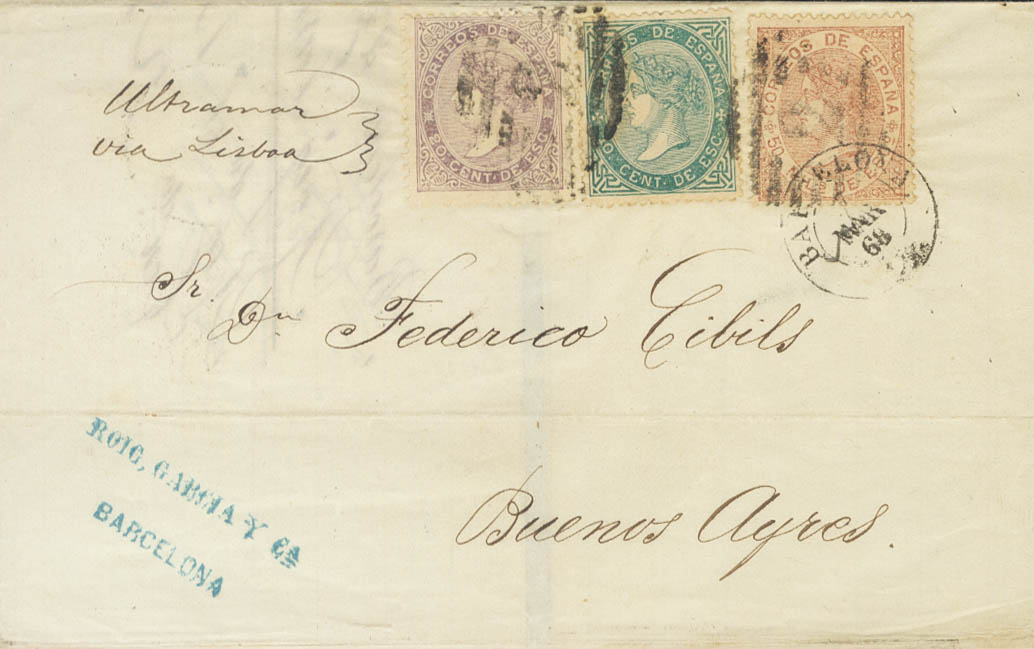 CORREOS DE ESPAÑA
20 CENT. DE ESC.
CORREOS DE ESPAÑA
20 CENT. DE ESC.
CORREOS DE ESPAÑA
50
DE
Ultramar
via Lisboa
BARCELONA
MAR
68
Sr.
Dn Federico Cibils
ROIG, GARCIA Y CA
BARCELONA
Buenos Ayres.